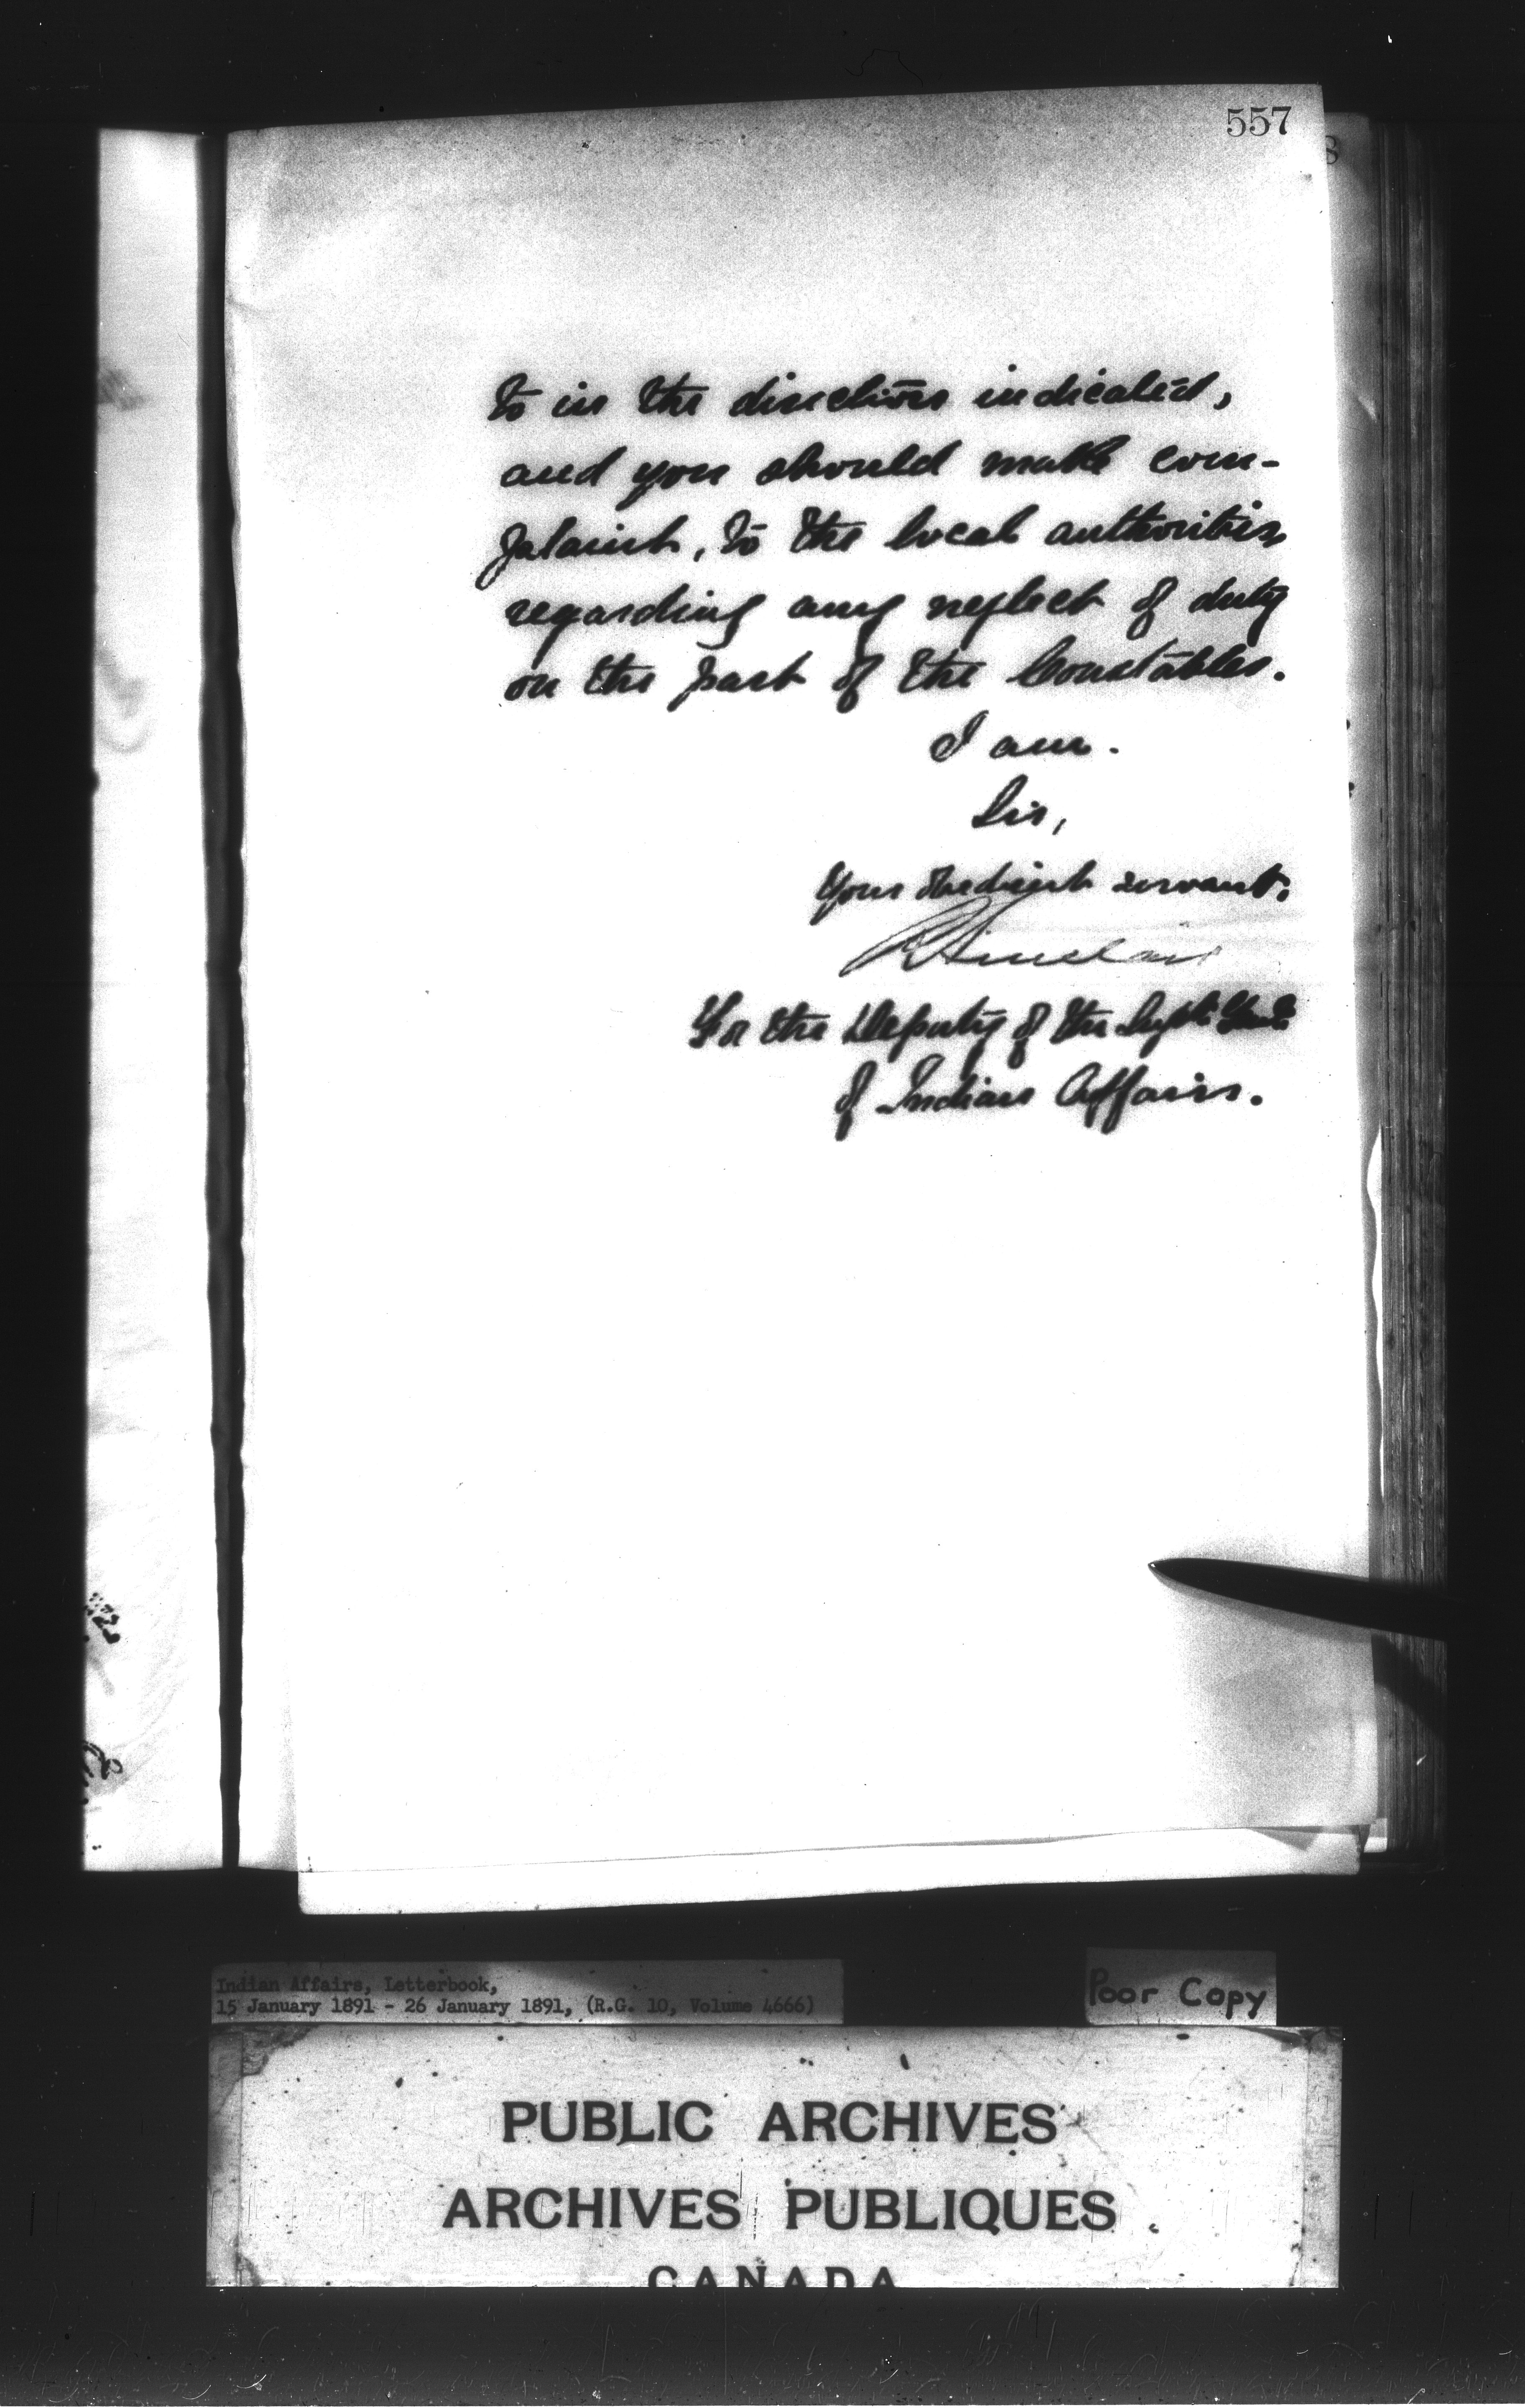 557
8
to in the direction indicated,
and you should make com-
plaint, to the local authorities
regarding any neglect of duty
on the part of the Constables.
I am.
Sir,
Your obedient servant.
R Sinclair
For the Deputy of the Supt. Genl.
of Indian Affairs.
Indian Affairs, Letterbook,
15 January 1891 - 26 January 1891, (R.G. 10, Volume 4666)
Poor Copy
PUBLIC ARCHIVES
ARCHIVES PUBLIQUES
CANADA